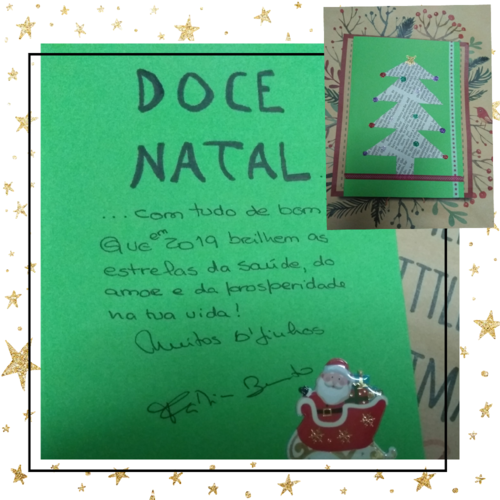 DOCE
NATAL
... com tudo de bom
Que em 2019 brilhem as
estrelas da saúde, do
amor e da prosperidade
na tua vida!
Muitos b'jinhos